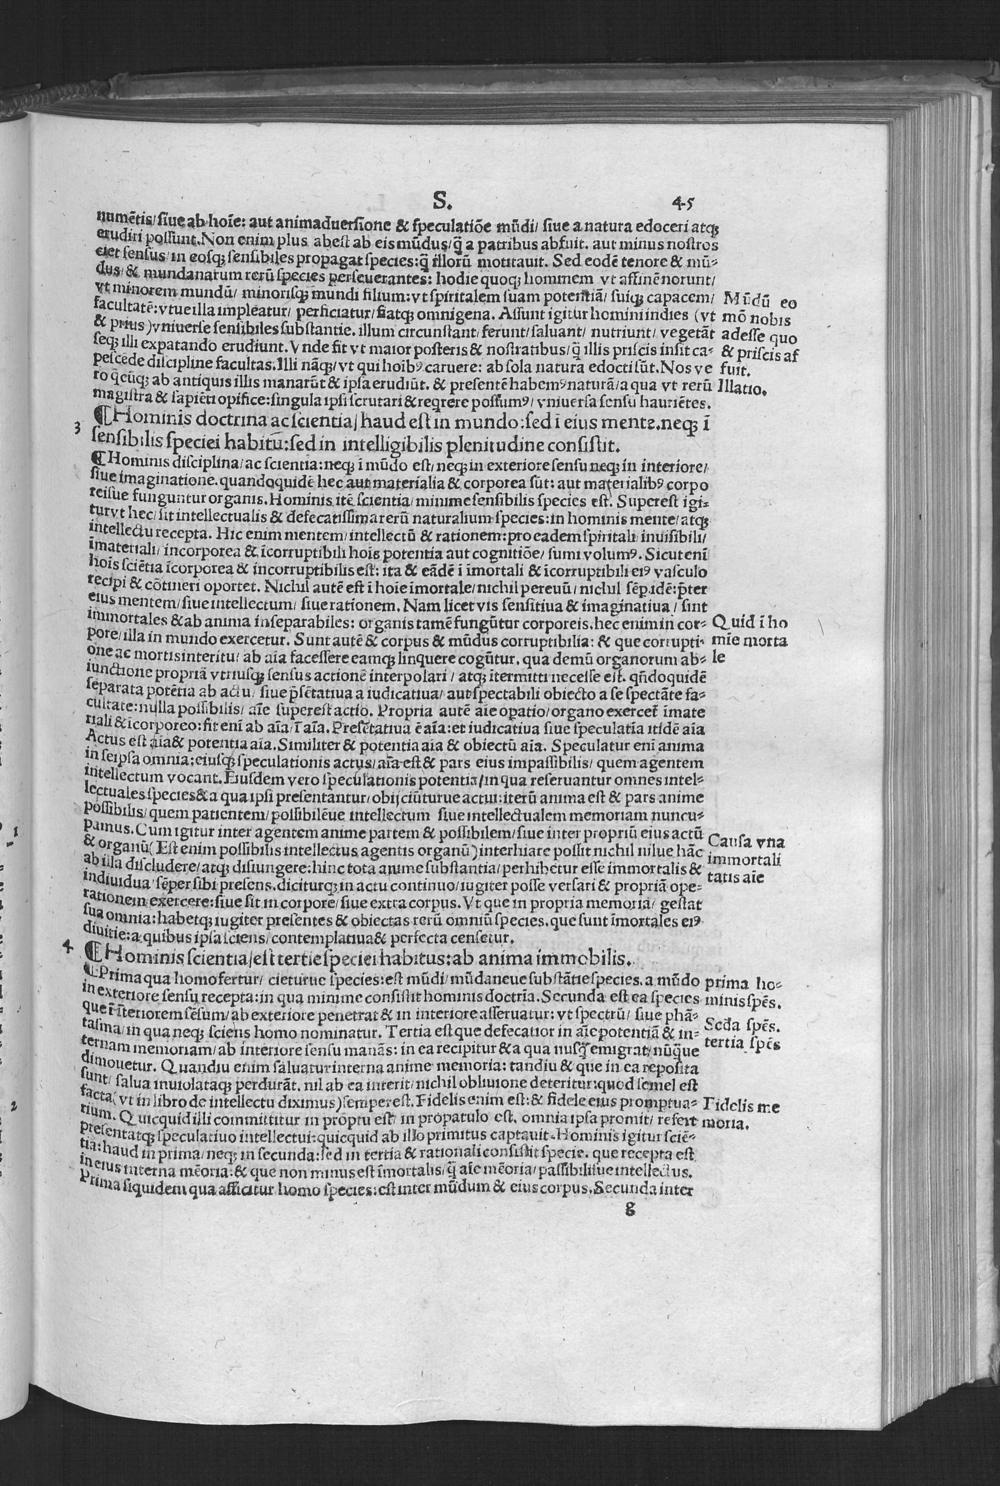 S. 45
numẽtis/ siue ab hoĩe: aut animaduersione & speculatiõe mũdi/ siue a natura edoceri atqꝫ
erudiri possunt. Non enim plus abest ab eis mũdus/ q̃ a patribus abfuit. aut minus nostros
ciet sensus/ in eosqꝫ sensibiles propagat species: q̃ illorũ motitauit. Sed eodẽ tenore & mũ-
dus/ & mundanarum rerũ species perseuerantes: hodie quoqꝫ hominem vt affinẽ norunt/
vt minorem mundũ/ minorisqꝫ mundi filium: vt spiritalem suam potentiã/ suiqꝫ capacem/
facultatẽ: vtue illa impleatur/ perficiatur/ fiatqꝫ omnigena. Assunt igitur homini indies (vt
& prius) vniuerse sensibiles substantie. illum circunstant/ ferunt/ saluant/ nutriunt/ vegetãt
seqꝫ illi expatando erudiunt. Vnde fit vt maior posteris & nostratibus/ q̃ illis priscis insit ca-
pescede discipline facultas. Illi nãqꝫ/ vt qui hoibꝰ caruere: ab sola natura edocti sũt. Nos ve
ro q̃cũqꝫ ab antiquis illis manarũt & ipsa erudiũt. & presentẽ habemꝰ naturã/ a qua vt rerũ
magistra & sapiẽti opifice: singula ipsi scrutari & reqrere possumꝰ/ vniuersa sensu hauriẽtes.
Mũdũ eo
mõ nobis
adesse quo
& priscis af
fuit.
Illatio.
3 ¶Hominis doctrina ac scientia/ haud est in mundo: sed ĩ eius mente. neqꝫ ĩ
sensibilis speciei habitũ: sed in intelligibilis plenitudine consistit.
¶Hominis disciplina/ ac scientia: neqꝫ ĩ mũdo est/ neqꝫ in exteriore sensu neqꝫ in interiore/
siue imaginatione. quandoquidẽ hec aut materialia & corporea sũt: aut materialibꝰ corpo
reisue funguntur organis. Hominis itẽ scientia/ minime sensibilis species est. Superest igi-
tur vt hec/ sit intellectualis & defecatissima rerũ naturalium species: in hominis mente/ atqꝫ
intellectu recepta. Hic enim mentem/ intellectũ & rationem: pro eadem spiritali/ inuisibili/
ĩmateriali/ incorporea & ĩcorruptibili hoĩs potentia aut cognitiõe/ sumi volumꝰ. Sicut enĩ
hoĩs sciẽtia ĩcorporea & incorruptibilis est: ita & eãdẽ ĩ ĩmortali & ĩcorruptibili eiꝰ vasculo
recipi & cõtineri oportet. Nichil autẽ est ĩ hoĩe ĩmortale/ nichil pereuũ/ nichil sẽp idẽ: p̃ter
eius mentem/ siue intellectum/ siue rationem. Nam licet vis sensitiua & imaginatiua/ sint
immortales & ab anima inseparabiles: organis tamẽ fungũtur corporeis. hec enim in cor-
pore/ illa in mundo exercetur. Sunt autẽ & corpus & mũdus corruptibilia: & que corrupti-
one ac mortis interitu/ ab aĩa facessere eamqꝫ linquere cogũtur. qua demũ organorum ab-
iunctione propriã vtriusqꝫ sensus actionẽ interpolari/ atqꝫ ĩtermitti necesse est. qñdoquidẽ
separata potẽtia ab actu/ siue p̃sẽtatiua a iudicatiua/ aut spectabili obiecto a se spectãte fa-
cultate: nulla possibilis/ aĩe superest actio. Propria autẽ aĩe opatio/ organo exercet̃ ĩmate
riali & ĩcorporeo: fit enĩ ab aĩa/ ĩ aĩa. Presẽtatiua ẽ aĩa: et iudicatiua siue speculatia itidẽ aĩa
Actus est aĩa & potentia aĩa. Similiter & potentia aĩa & obiectũ aĩa. Speculatur enĩ anima
in seipsa omnia: eiusqꝫ speculationis actus/ aĩa est & pars eius impassibilis/ quem agentem
intellectum vocant. Eiusdem vero speculationis potentia/ in qua reseruantur omnes intel-
lectuales species & a qua ipsi presentantur/ obijciũturue actui: iterũ anima est & pars anime
possibilis/ quem patientem/ possibilẽue intellectum siue intellectualem memoriam nuncu-
pamus. Cum igitur inter agentem anime partem & possibilem/ siue inter propriũ eius actũ
& organũ (Est enim possibilis intellectus agentis organũ) interhiare possit nichil nilue hãc
ab illa discludere/ atqꝫ disiungere: hinc tota anime substantia/ perhibetur esse immortalis &
indiuidua/ sẽper sibi presens. diciturqꝫ in actu continuo/ iugiter posse versari & propriã ope-
rationem exercere: siue sit in corpore/ siue extra corpus. Vt que in propria memoria/ gestat
sua omnia: habetqꝫ iugiter presentes & obiectas rerũ omniũ species. que sunt ĩmortales eiꝰ
diuitie: a quibus ipsa sciens/ contemplatiua & perfecta censetur.
Quid ĩ ho
mie morta
le
Causa vna
immortali
tatis aĩe
4 ¶Hominis scientia/ est tertie speciei habitus: ab anima immobilis.
¶Prima qua homo fertur/ cieturue species: est mũdi/ mũdaneue substãtie species. a mũdo
in exteriore sensu recepta: in qua minime consistit hominis doctrĩa. Secunda est ea species
que ĩ ĩteriorem sẽsum/ ab exteriore penetrat & in interiore asseruatur: vt spectrũ/ siue phã-
tasma/ in qua neqꝫ sciens homo nominatur. Tertia est que defecatior in aĩe potentiã & in-
ternam memoriam/ ab interiore sensu manãs: in ea recipitur & a qua nusq̃ emigrat/ nũq̃ue
dimouetur. Quandiu enim saluatur interna anime memoria: tandiu & que in ea reposita
sunt/ salua inuiolataqꝫ perdurãt. nil ab ea interit/ nichil obliuione deteritur: quod semel est
facta (vt in libro de intellectu diximus) semper est. Fidelis enim est: & fidele eius promptua-
rium. Quicquid illi committitur in prõptu est/ in propatulo est. omnia ipsa promit/ refert
presentatqꝫ speculatiuo intellectui: quicquid ab illo primitus captauit. Hominis igitur sciẽ-
tia: haud in prima/ neqꝫ in secunda: sed in tertia & rationali consistit specie. que recepta est
in eius interna mẽoria: & que non minus est ĩmortalis/ q̃ aĩe mẽoria/ passibilisue intellectus.
Prima siquidem qua afficitur homo species: est inter mũdum & eius corpus. Secunda inter
prima ho-
minis spẽs.
Scda spẽs.
tertia spẽs
Fidelis me
moria.
g
1
2